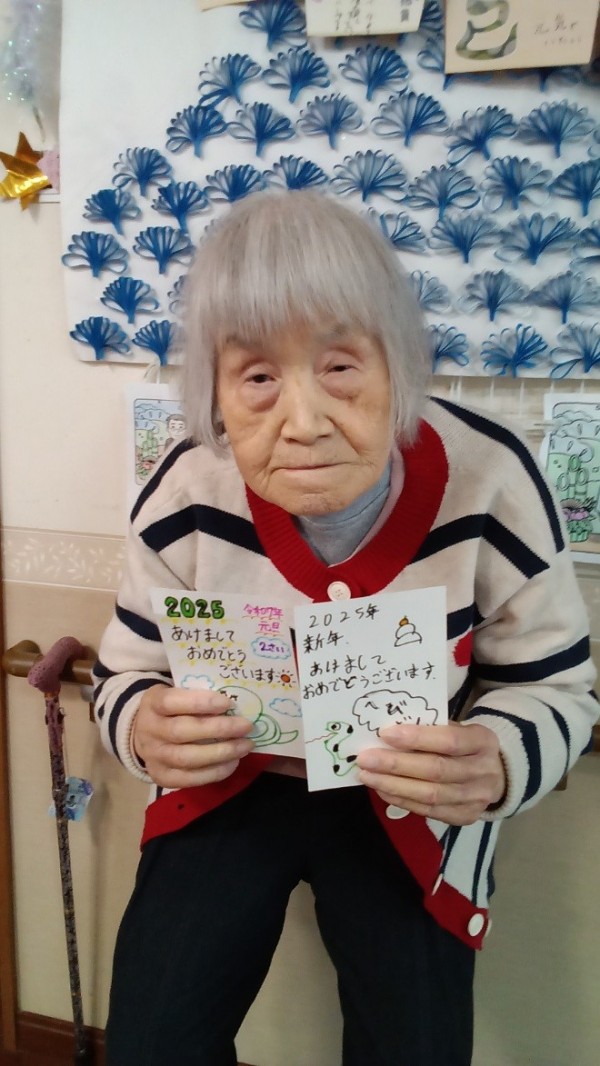 2025
令和7年
元旦
あけまして
おめでとう
ございます
2025年
新年、
あけまして
おめでとうございます。
へび